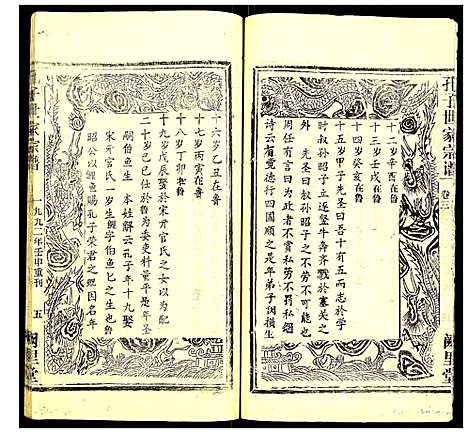 孔子世家宗譜
卷三
闕里堂
十二岁辛酉在鲁
十三岁壬戌在鲁
十四岁癸亥在鲁
十五岁甲子先圣曰吾十有五而志於学
时叔孙昭子立逐竖牛奔齐戮於塞关之
外先圣曰叔孙昭子之不劳不可能也
周任有言曰为政者不赏私劳不罚私怨
诗云有觉德行四国顺之是年弟子闵损生
十六岁乙丑在鲁
十七岁丙寅在鲁
十八岁丁卯在鲁
十九岁戊辰在鲁娶於宋亓官氏之女以为配
二十岁己巳仕於鲁为委吏料量平是年圣
嗣伯鱼生 本姓解云孔子年十九娶
宋亓官氏一岁生鲤字伯鱼之生也鲁
昭公以鲤鱼赐孔子荣君之贶因名年
孔子世家宗譜
一九九二年壬申重刊
五
闕里堂